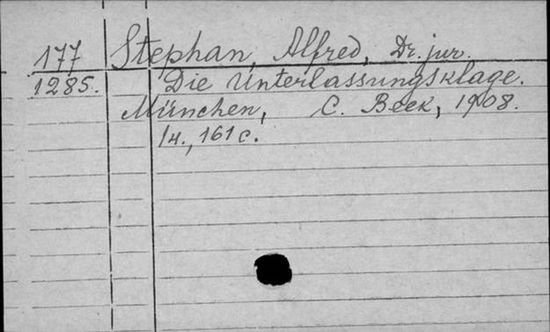 177 Stephan, Alfred, Dr. jur.
1285. Die Unterlassungsklage.
München, C. Beck, 1908.
14., 161 c.